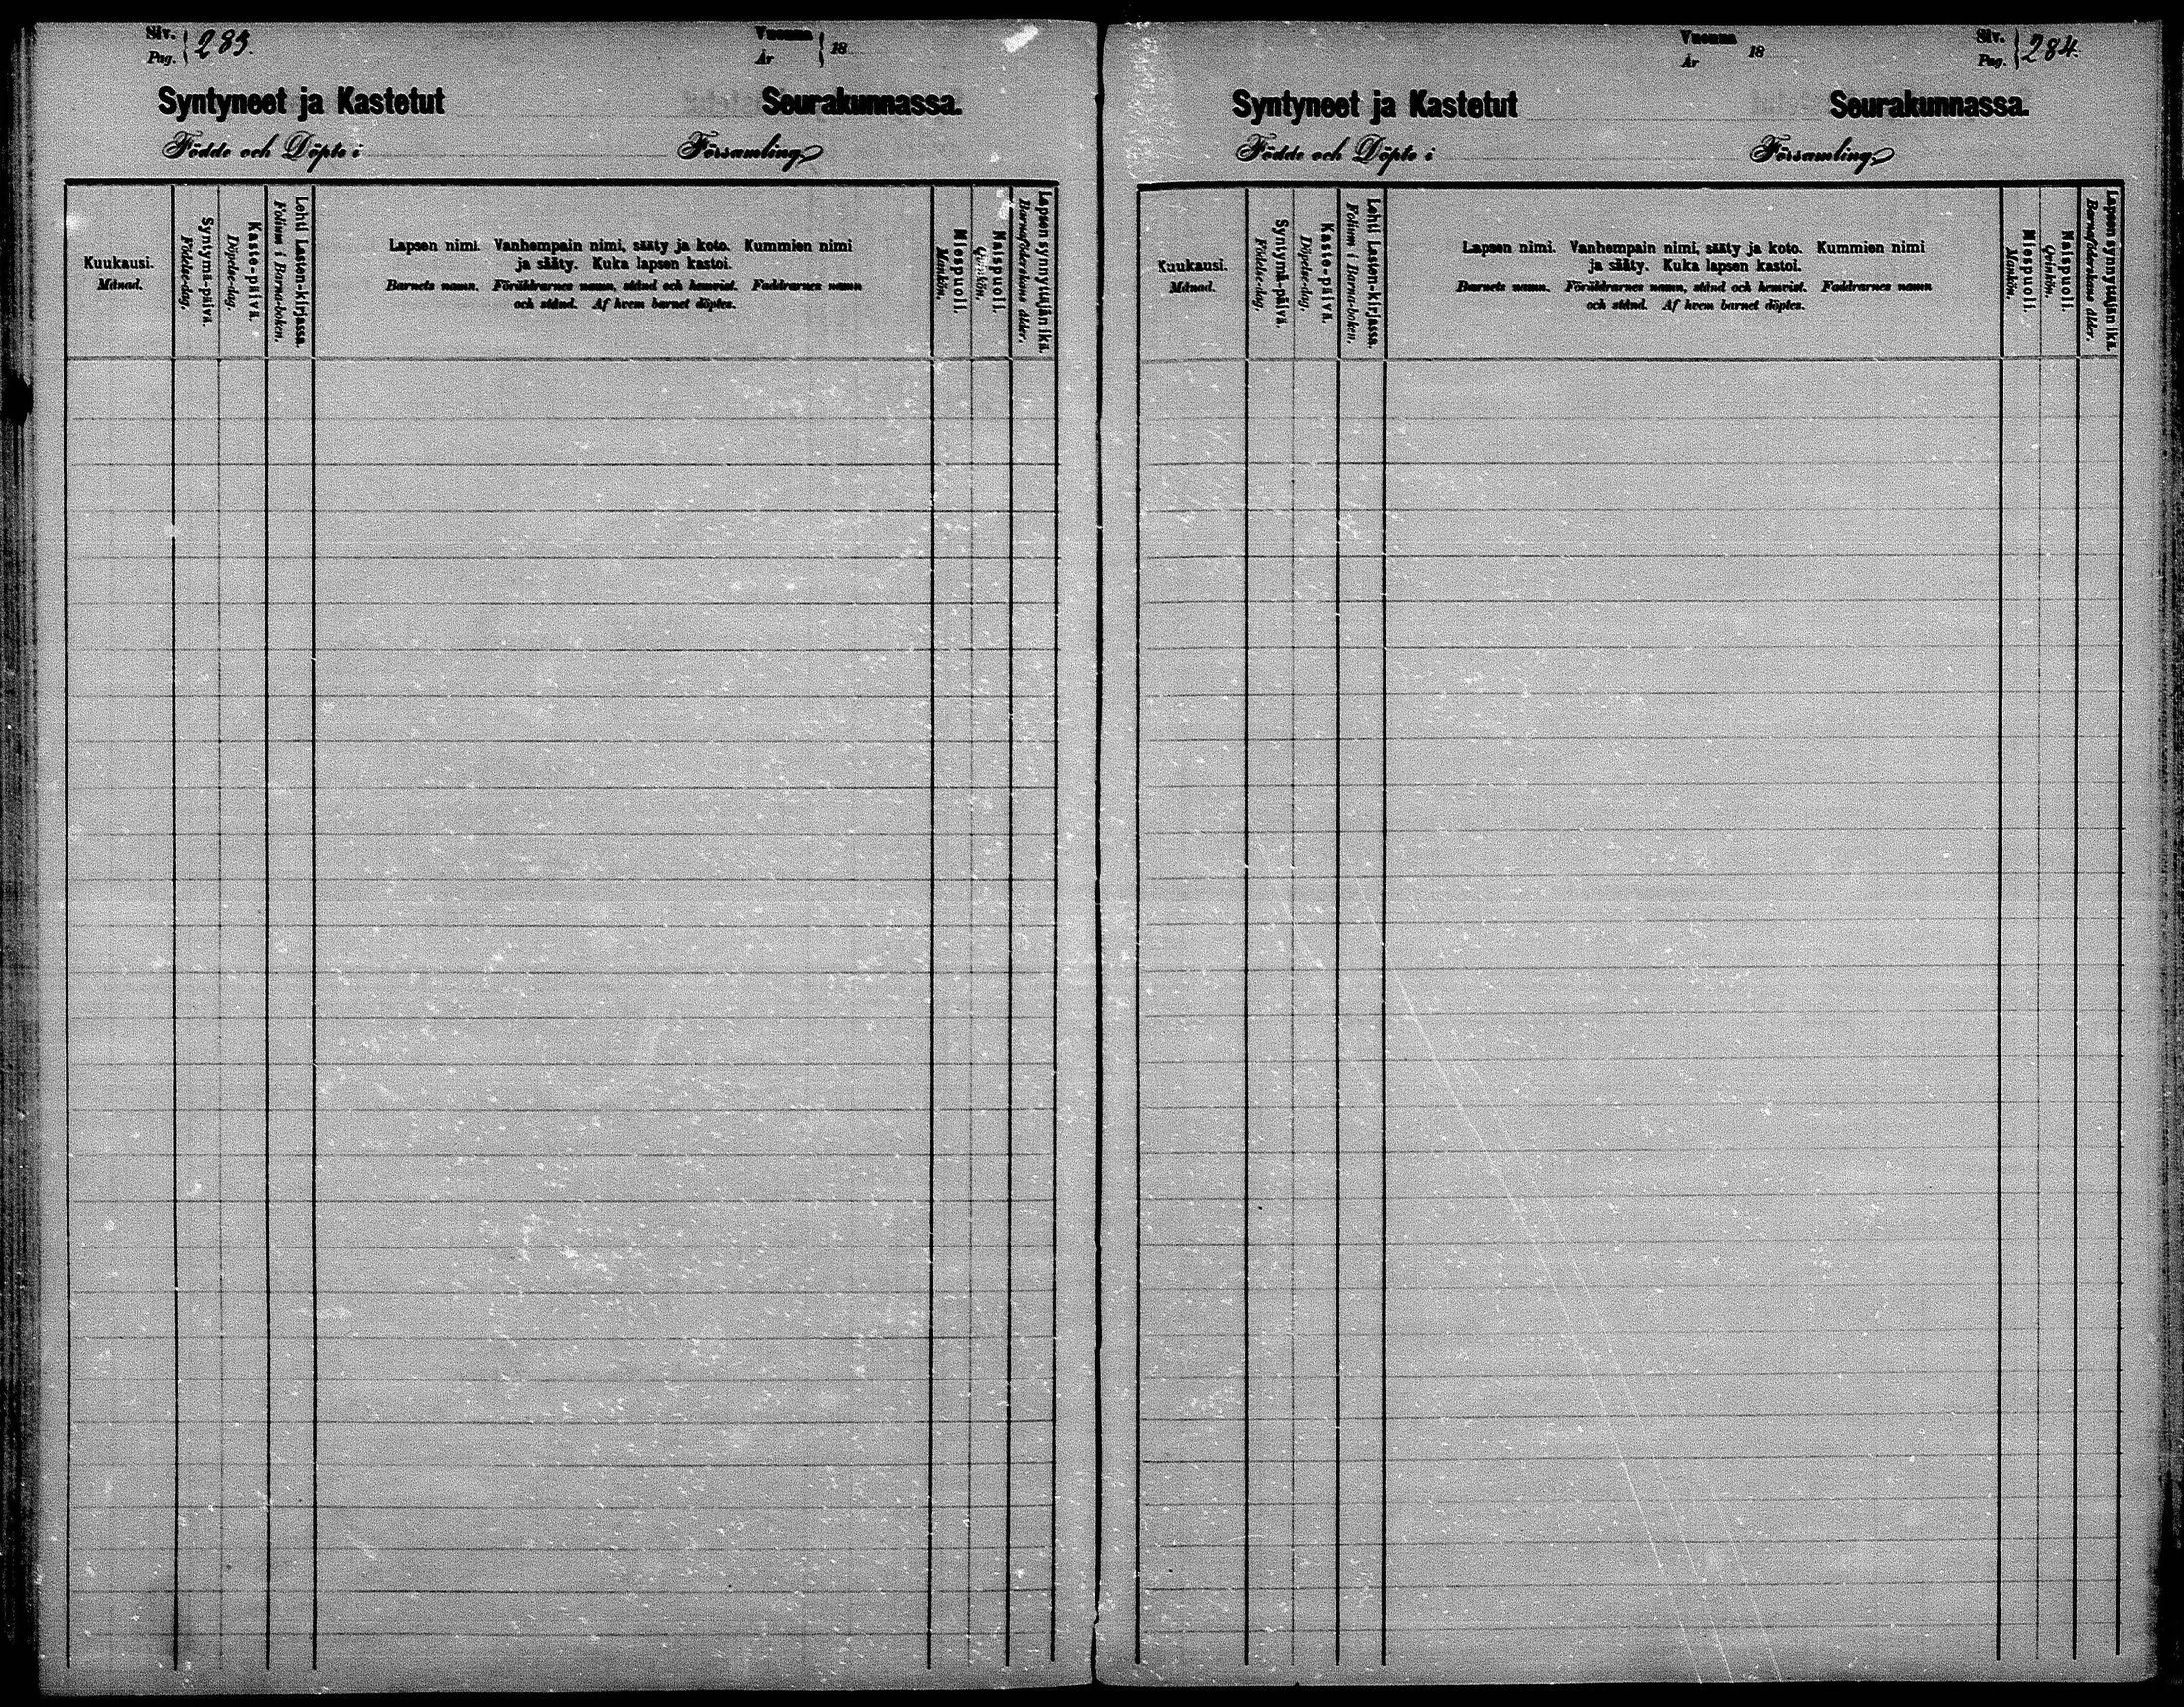 Siv. 283.
Pag.
Vuonna 18
År
Syntyneet ja Kastetut Seurakunnassa.
Födde och Döpte i Församling
Kuukausi.
Månad.
Syntymä-päivä.
Födelse-dag.
Kaste-päivä.
Döpelse-dag.
Lehti Lasten-kirjassa.
Folium i Barna-boken.
Lapsen nimi. Vanhempain nimi, sääty ja koto. Kummien nimi
ja sääty. Kuka lapsen kastoi.
Barnets namn. Föräldrarnes namn, stånd och hemvist. Faddrarnes namn
och stånd. Af hvem barnet döptes.
Miespuoli.
Mankön.
Naispuoli.
Qvinkön.
Lapsen synnyttäjän ikä.
Barnaföderskans ålder.
Vuonna 18
År
Siv. 284.
Pag.
Syntyneet ja Kastetut Seurakunnassa.
Födde och Döpte i Församling
Kuukausi.
Månad.
Syntymä-päivä.
Födelse-dag.
Kaste-päivä.
Döpelse-dag.
Lehti Lasten-kirjassa.
Folium i Barna-boken.
Lapsen nimi. Vanhempain nimi, sääty ja koto. Kummien nimi
ja sääty. Kuka lapsen kastoi.
Barnets namn. Föräldrarnes namn, stånd och hemvist. Faddrarnes namn
och stånd. Af hvem barnet döptes.
Miespuoli.
Mankön.
Naispuoli.
Qvinkön.
Lapsen synnyttäjän ikä.
Barnaföderskans ålder.